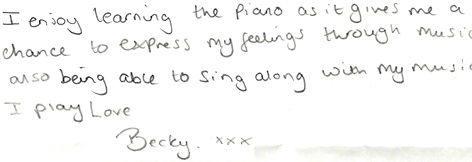 I enjoy learning the piano as it gives me a
chance to express my feelings through music
also being able to sing along with my music
I play Love
Becky. xxx